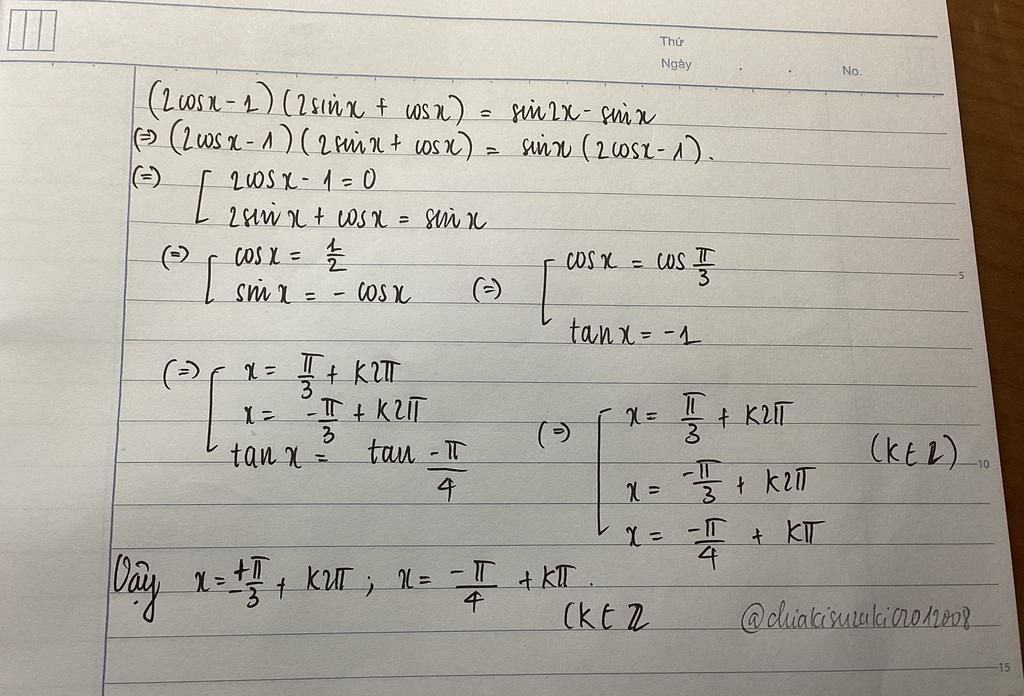 Thứ
Ngày . . No.
(2cosx - 1)(2sinx + cosx) = sin2x - sinx
(=) (2cosx - 1)(2sinx + cosx) = sinx(2cosx - 1).
(=) [ 2cosx - 1 = 0
2sinx + cosx = sinx
(=) [ cosx = 1/2
sinx = - cosx
(=) [ cosx = cos π/3
tanx = -1
5
(=) [ x = π/3 + k2π
x = -π/3 + k2π
tanx = tan -π/4
(=) [ x = π/3 + k2π
x = -π/3 + k2π
x = -π/4 + kπ
(k∈Z)
10
Vậy x = ±π/3 + k2π ; x = -π/4 + kπ .
(k∈Z
@chiakisuzuki01012008
15